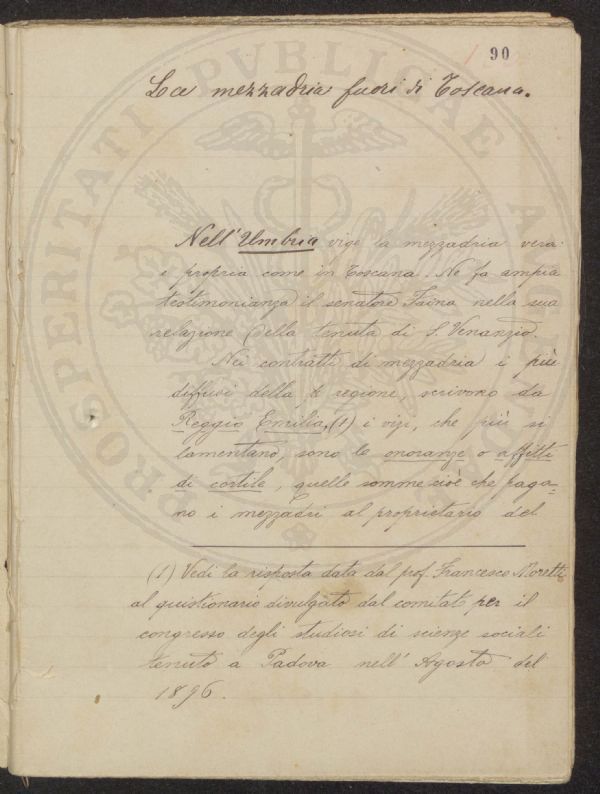 90
La mezzadria fuori di Toscana.
Nell'Umbria vige la mezzadria vera
e propria come in Toscana. Ne fa ampia
testimonianza il senatore Faina nella sua
relazione della tenuta di S. Venanzio.
Nei contratti di mezzadria i più
diffusi della regione, scrivono da
Reggio Emilia, (1) i vizi, che più si
lamentano, sono le onoranze o affitti
di cortile, quelle somme cioè che paga-
no i mezzadri al proprietario del
(1) Vedi la risposta data dal prof. Francesco Moretti
al quistionario divulgato dal comitato per il
congresso degli studiosi di scienze sociali
tenuto a Padova nell'Agosto del
1896.
PROSPERITATI PVBLICAE AVGENDAE